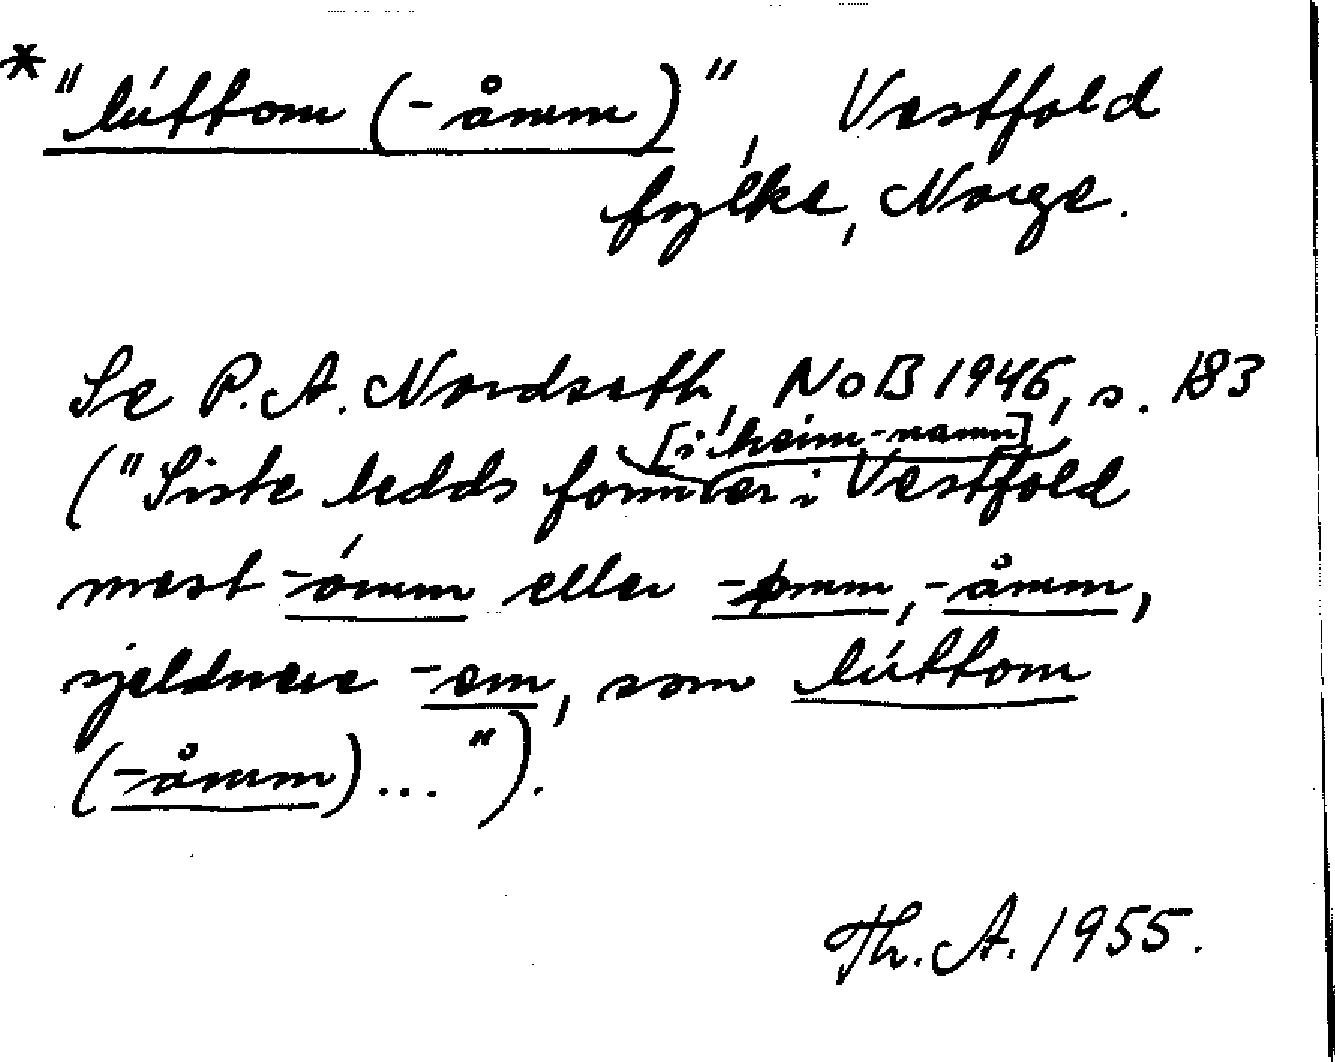 *"lúttom (-åmm)", Vestfold
fylke, Norge.
Se P. A. Nordseth, NoB 1946, s. 183
[i heim-namn]
("Siste ledds former i Vestfold
mest -ómm eller -ømm, -åmm,
sjeldnere -em, som lúttom
(-åmm)...").
Th. A. 1955.